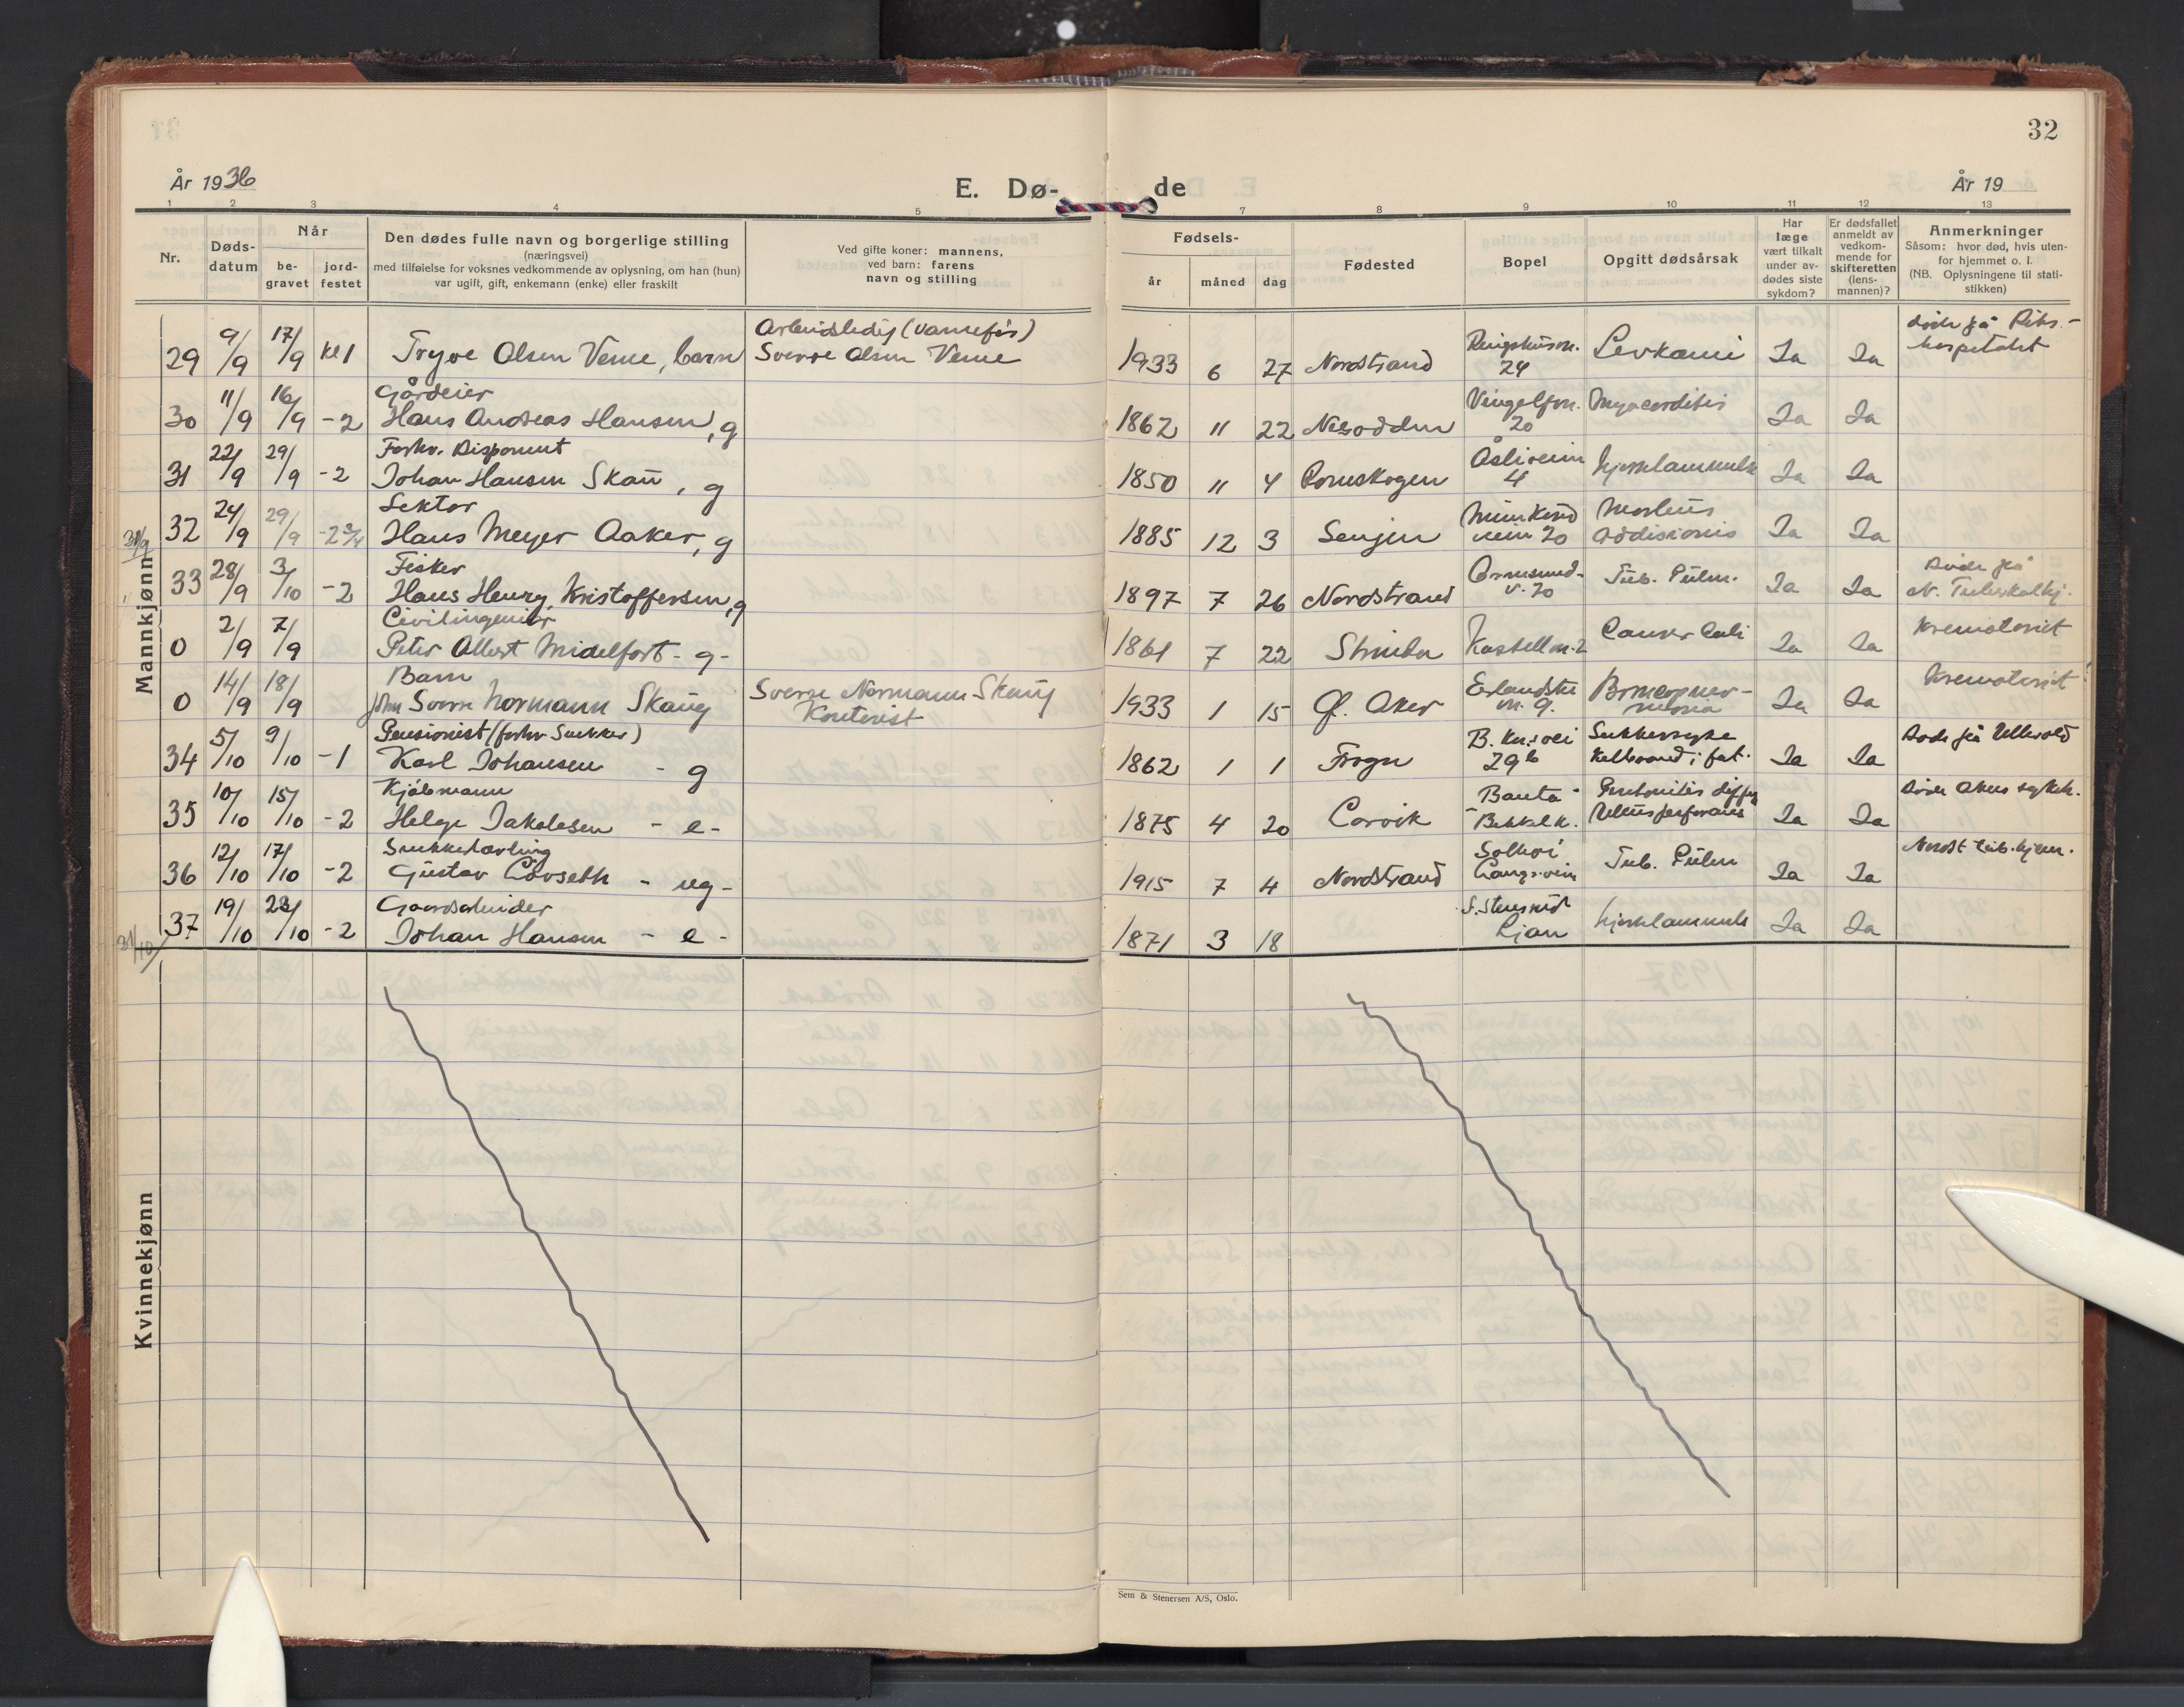 32
År 1936
E. Dø-
de
År 19
1 2 3 4 5
7 8 9 10 11 12 13
Nr.
Døds-
datum
Når
be-
gravet
jord-
festet
Den dødes fulle navn og borgerlige stilling
(næringsvei)
med tilføielse for voksnes vedkommende av oplysning, om han (hun)
var ugift, gift, enkemann (enke) eller fraskilt
Ved gifte koner: mannens,
ved barn: farens
navn og stilling
Fødsels-
år måned dag
Fødested
Bopel
Opgitt dødsårsak
Har
læge
vært tilkalt
under av-
dødes siste
sykdom?
Er dødsfallet
anmeldt av
vedkom-
mende for
skifteretten
(lens-
mannen)?
Anmerkninger
Såsom: hvor død, hvis uten-
for hjemmet o. l.
(NB. Oplysningene til stati-
stikken)
Mannkjønn
Arbeidsledig (vanefør)
døde på Riks.-
29 9/9 17/9 kl 1 Trygve Olsen Verne, barn Sverre Olsen Verne 1933 6 27 Nordstrand 24 Levkemi Ja Ja hospitalet
Gårdeier
30 11/9 16/9 -2 Hans Andreas Hansen, g 1862 11 22 Nesodden 20 Myocarditis Ja Ja
Forhv. Disponent
31 22/9 29/9 -2 Johan Hansen Skau, g 1850 11 4 Romskogen Åsliveien 4 hjertelammelse Ja Ja
Lektor
31/9 32 24/9 29/9 -2 3/4 Hans Meyer Aaker, g 1885 12 3 Senjen Munkerud veien 20 Morbus Addisionis Ja Ja
Fisker
Døde på
33 28/9 3/10 -2 Hans Henry Kristoffersen, g 1897 7 26 Nordstrand Ormsund- v. 20 Tub. Pulm. Ja Ja N. Tuberkelhj.
Civilingeniør
0 2/9 7/9 Peter Albert Midelfort - g - 1861 7 22 Strinda Kastellv. 2 Cancer Coli Ja Ja Krematoriet
Barn
0 14/9 18/9 John Sverre Normann Skaug Sverre Normann Skaug Kontorist 1933 1 15 Ø. Aker v. 9. Ja Ja Krematoriet
Pensionist (forhv. Snekker)
34 5/10 9/10 -1 Karl Johansen - g 1862 1 1 Frogn B. Kr. vei 29b Sukkersyke Koldbrand i fot. Ja Ja Døde på Ullevold
Kjøbmann
35 10/10 15/10 -2 Helge Jakobsen - e - 1875 4 20 Larvik Bauta - Bekkel. Peritonitis diffus Ulcus perforans Ja Ja Døde Akers sykeh.
Snekkerlærling
36 12/10 17/10 -2 Gustav Løvseth - ug - 1915 7 4 Nordstrand Solhøi Langs.veien Tub. Pulm Ja Ja Nordst. tub.hjem.
Gaardsarbeider
31/10 37 19/10 23/10 -2 Johan Hansen - e - 1871 3 18 S. Stensrud Ljan hjertelammelse Ja Ja
Kvinnekjønn
Sem & Stenersen A/S, Oslo.